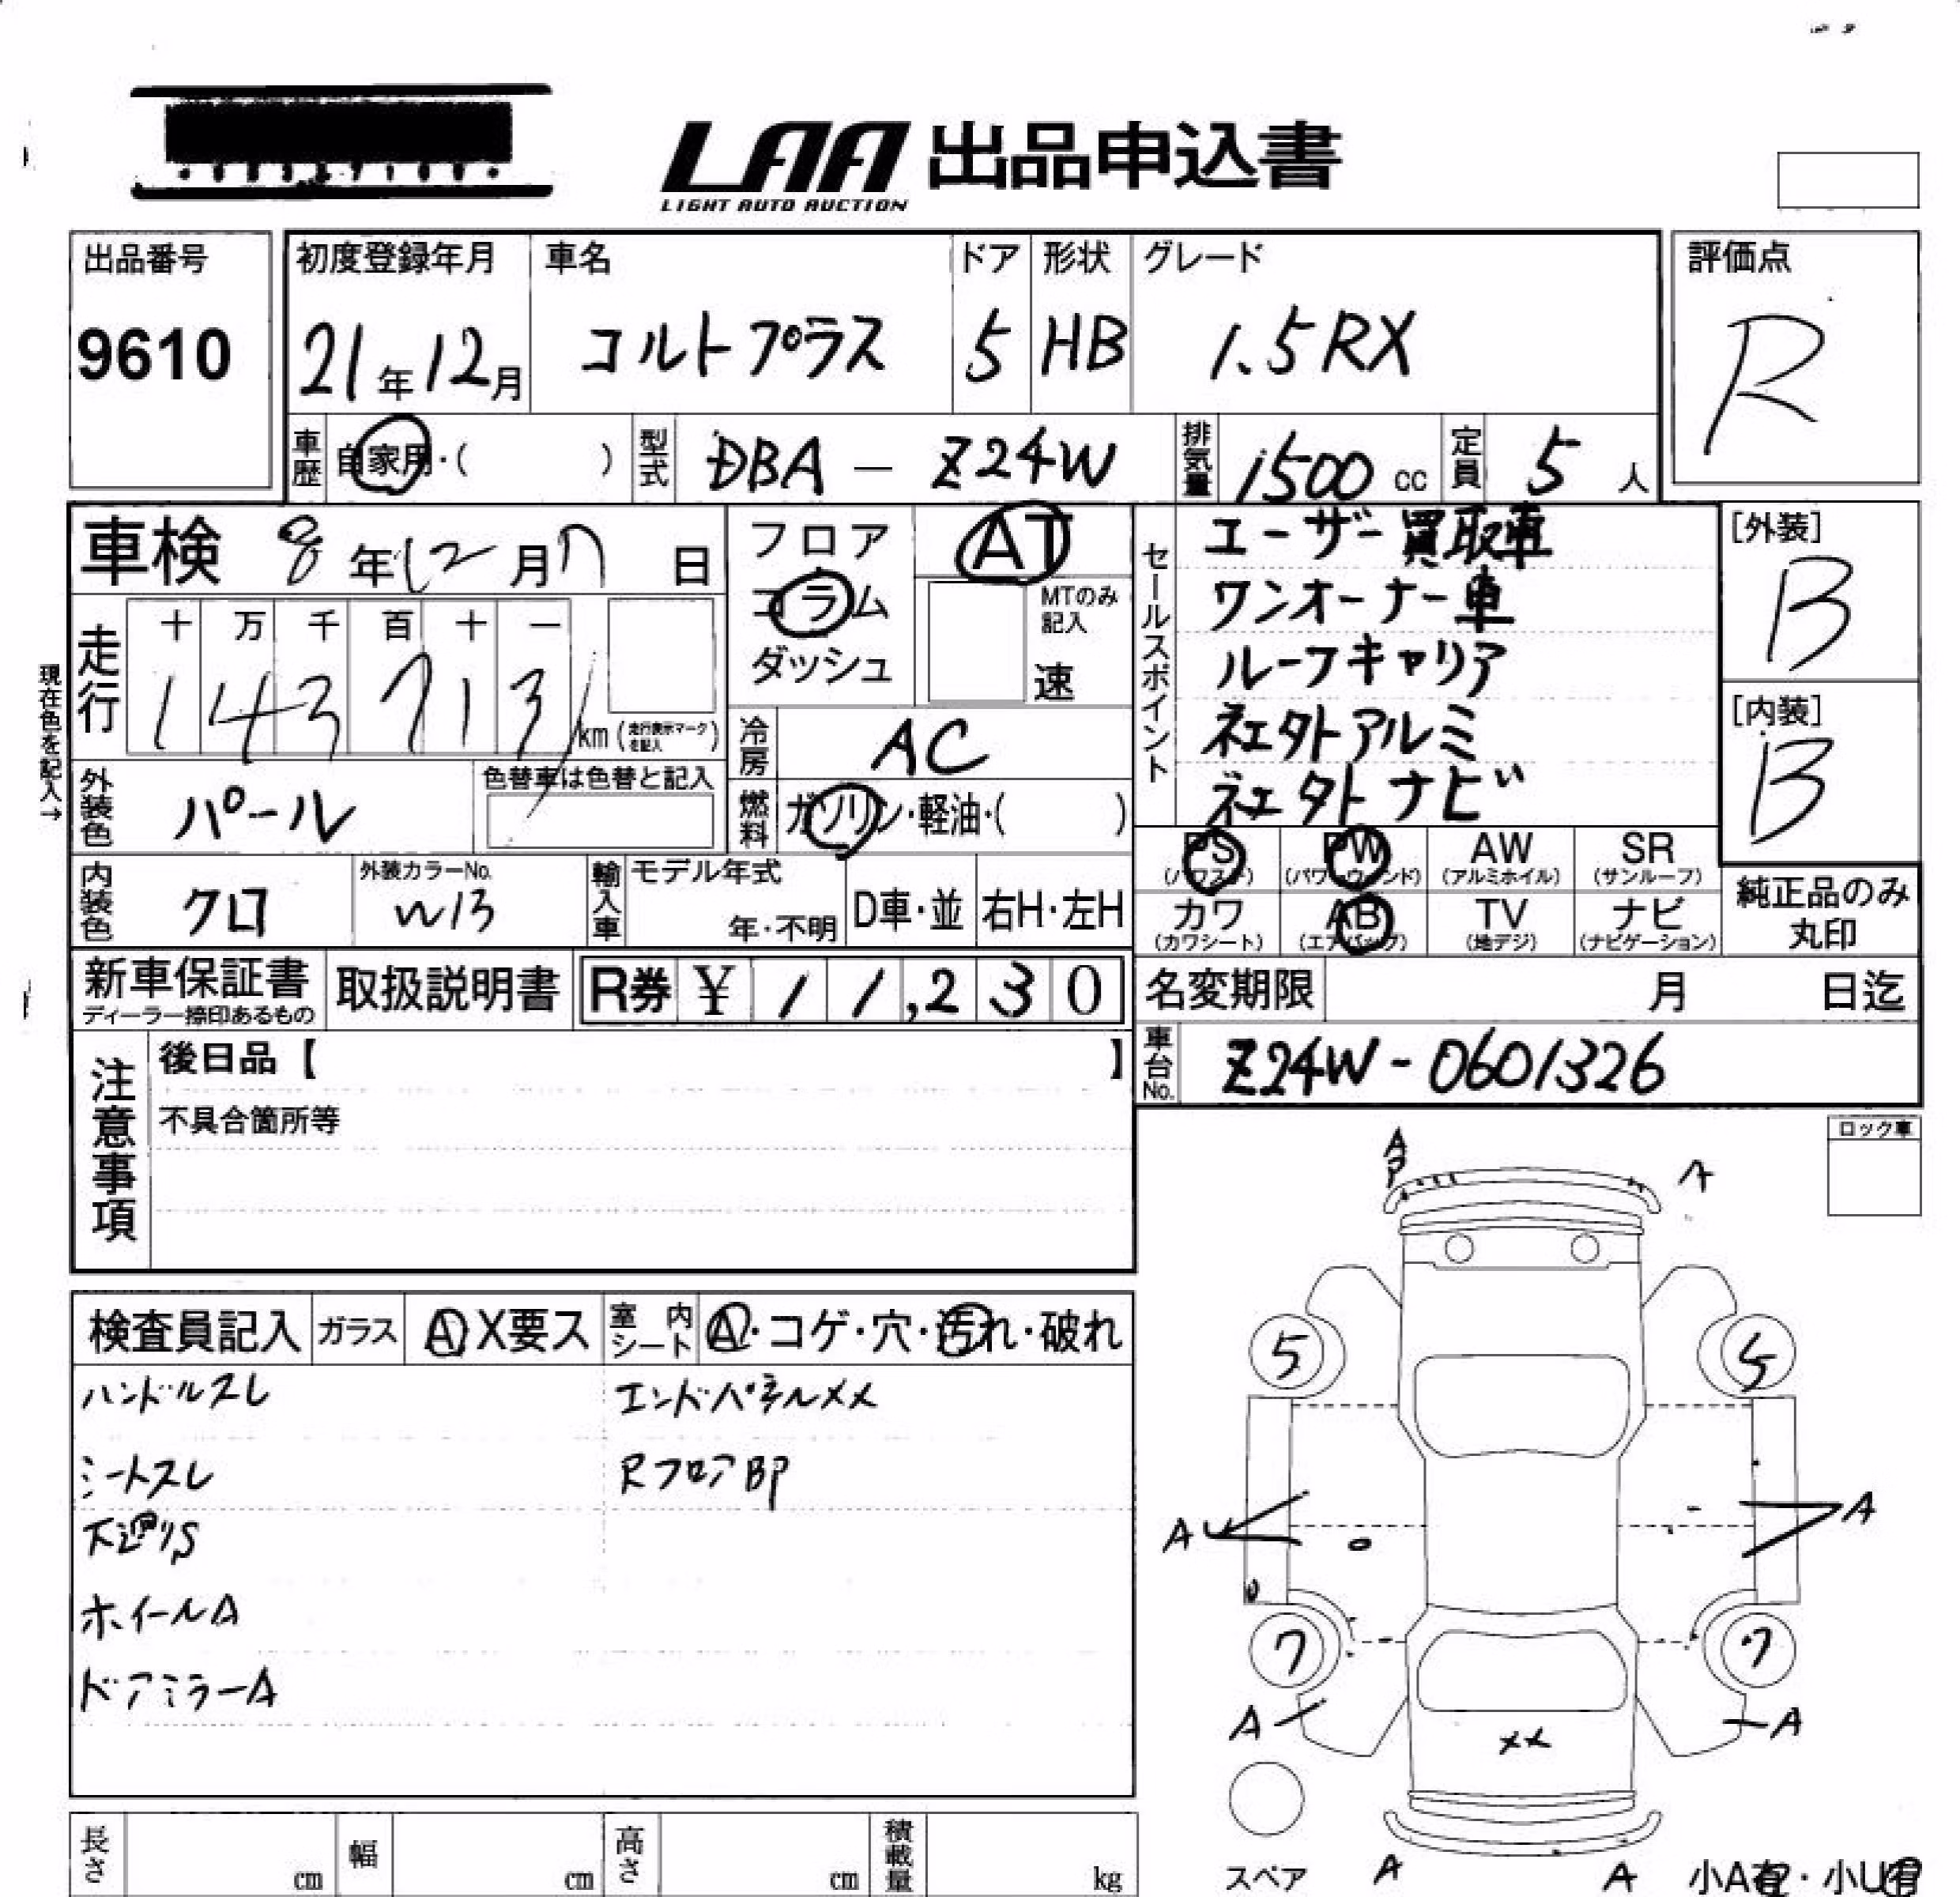 LAA 出品申込書
LIGHT AUTO AUCTION
出品番号 9610
初度登録年月 21年12月
車名 コルトプラス
ドア 5
形状 HB
グレード 1.5RX
評価点 R
車歴 自家用・( )
型式 DBA - Z24W
排気量 1500 cc
定員 5人
車検 8年12月17日
フロア
コラム
ダッシュ
AT
MTのみ記入
速
セールスポイント
ユーザー買取車
ワンオーナー車
ルーフキャリア
社外アルミ
社外ナビ
[外装] B
[内装] B
現在色を記入→
走行
十 万 千 百 十 一
1 4 3 7 1 3
km (走行表示マークを記入)
冷房 AC
外装色 パール
色替車は色替と記入
燃料 ガソリン・軽油・( )
内装色 クロ
外装カラーNo. W13
輸入車
モデル年式 年・不明
D車・並
右H・左H
PS (パワステ)
PW (パワーウィンド)
AW (アルミホイル)
SR (サンルーフ)
カワ (カワシート)
AB (エアバッグ)
TV (地デジ)
ナビ (ナビゲーション)
純正品のみ丸印
新車保証書
ディーラー捺印あるもの
取扱説明書
R券 ¥ 11,230
名変期限 月 日迄
車台No. Z24W-0601326
注意事項
後日品【 】
不具合箇所等
ロック車
検査員記入
ガラス A X要ス
室内シート A・コゲ・穴・汚れ・破れ
ハンドルスレ
エンドパネルXX
シートスレ
RフロアBP
下廻りS
ホイールA
ドアミラーA
A
A
5
5
A
A
U
7
7
A
A
XX
スペア
A
A
小A有・小U有
長さ cm
幅 cm
高さ cm
積載量 kg